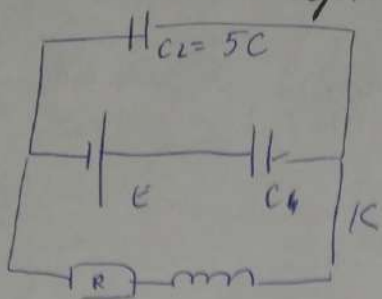 C2 = 5C
E
C4
K
R